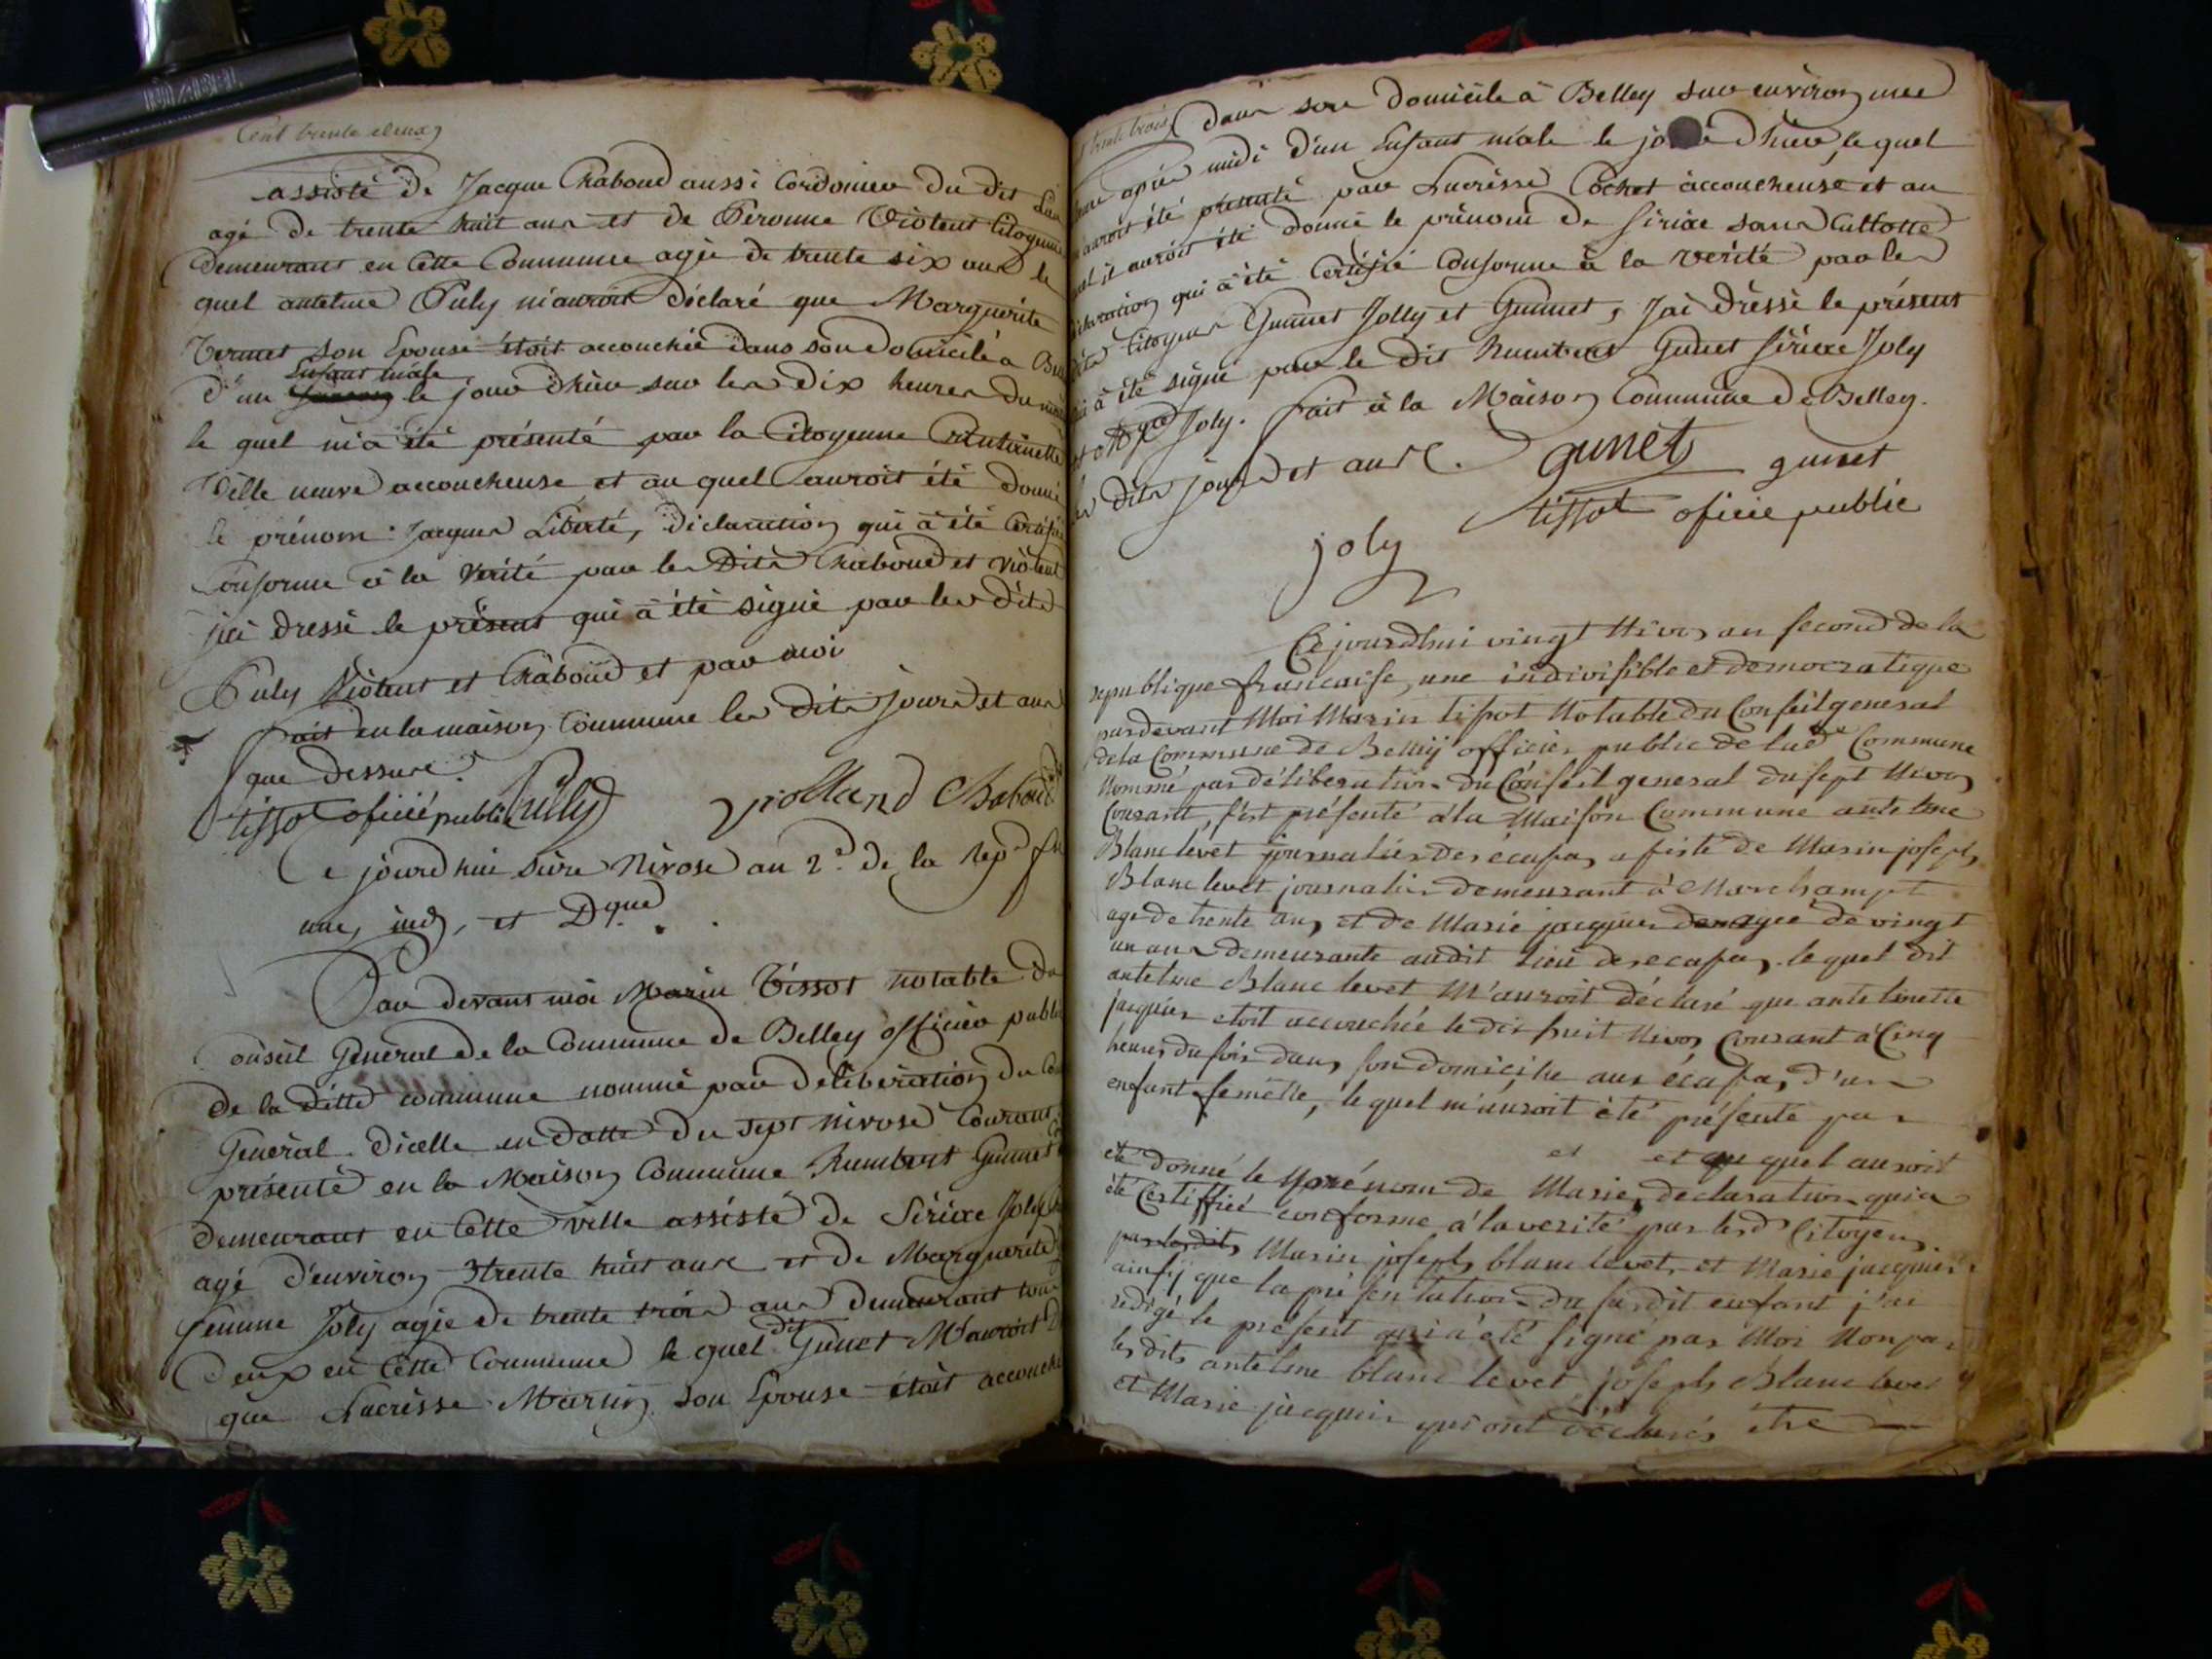 Cent trente deux
assisté de Jacque Chaboud aussi Cordonier du dit
agé de trente huit ans et de Peronne Violent Citoyenne
demeurant en Cette Commune agée de trente six ans le
quel antelme Puly m'auroit déclaré que Marguerite
son Epouse étoit accouchée dans son domicile a
d'un Enfant male le jour d'hier sur les dix heures du
le quel m'a été présenté par la Citoyenne Antoinette
Ville neuve accoucheuse et au quel auroit été donné
le prénom Jacques Liberté, déclaration qui à été Certifié
Conforme à la verité par les Dits Chaboud et Violent
j'ai dressé le présent qui à été signé par les dits
Puly Violent et Chaboud et par moi
fait en la maison Commune les dits jours et ans
que dessure.
tissot oficié public Puly violland Chaboud
Ce jourd'hui nivose an 2.e de la Rep.e
une, ind, et Dque.
Par devant moi Marin Tissot notable du
Conseil Général de la Commune de Belley officier public
de la ditte commune nommé par deliberation du
Général d'icelle en datte du sept nivose Courant
présenté en la Maison Commune Humbert Gunnet
demeurant en Cette ville assisté de Sirixe Joly
agé d'environ trente huit ans et de Marguerite
femme Joly agée de trente trois ans demeurant tous
deux en Cette Commune le quel dit Gunet M'auroit
que Lucresse Martin son Epouse étoit accouché
trente trois
dans son domicile à Belley sur environ une
heure après midi d'un Enfant male le jour d'hier, le quel
m'auroit été présenté par Lucresse Cochet accoucheuse et au
quel il auroit été donné le prénom de Sirixe sans Cullotte
déclaration qui à été Certifié Conforme à la verité par les
dits Citoyens Gunnet Jolly et Gunnet, J'ai dressé le présent
qui à été signé par le dit Humbert Gunet Sirixe Joly
et Mgte Joly. fait à la Maison Commune de Belley.
les dits jours et ans.
Gunet gunet
tissot oficié public
joly
Cejourdhui vingt Nivos an second de la
republique francaise, une indivisible et democratique
pardevant Moi Marin tissot Notable du Conseil general
de la Commune de Belley officier public de lad.te Commune
Nommé par déliberation du Conseil general du sept Nivos
Courant, s'est présenté à la Maison Commune antelme
Blanc levet journalier des écasses assisté de Marin joseph
Blanc levet journalier demeurant à Marchampt
agé de trente ans et de Marie jacquier agée de vingt
un ans demeurante audit lieu des ecasses. lequel dit
antelme Blanc levet M'auroit déclaré que antelmette
jacquier etoit accouchée le dix huit Nivos Courant à Cinq
heures du soir dans son domicile aux écasses d'un
enfant femelle, lequel m'auroit été présenté par
et et au quel auroit
eté donné le prénom de Marie, declaration qui a
été Certiffiée conforme à la verité par lesd. Citoyens
par lesdits Marin joseph blanc levet, et Marie jacquier
ainsy que la présentation du susdit enfant j'ai
redigé le présent qui à été signé par Moi Non par
les dits antelme blanc levet, joseph Blanc levet
et Marie jacquier qui ont déclarés être